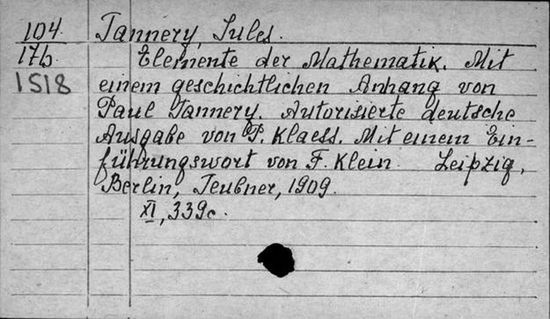 104. Tannery, Jules.
17b. Elemente der Mathematik. Mit
1518 einem geschichtlichen Anhang von
Paul Tannery. Autorisierte deutsche
Ausgabe von P. Klaess. Mit einem Ein-
führungswort von F. Klein. Leipzig,
Berlin, Teubner, 1909.
XI, 339c.